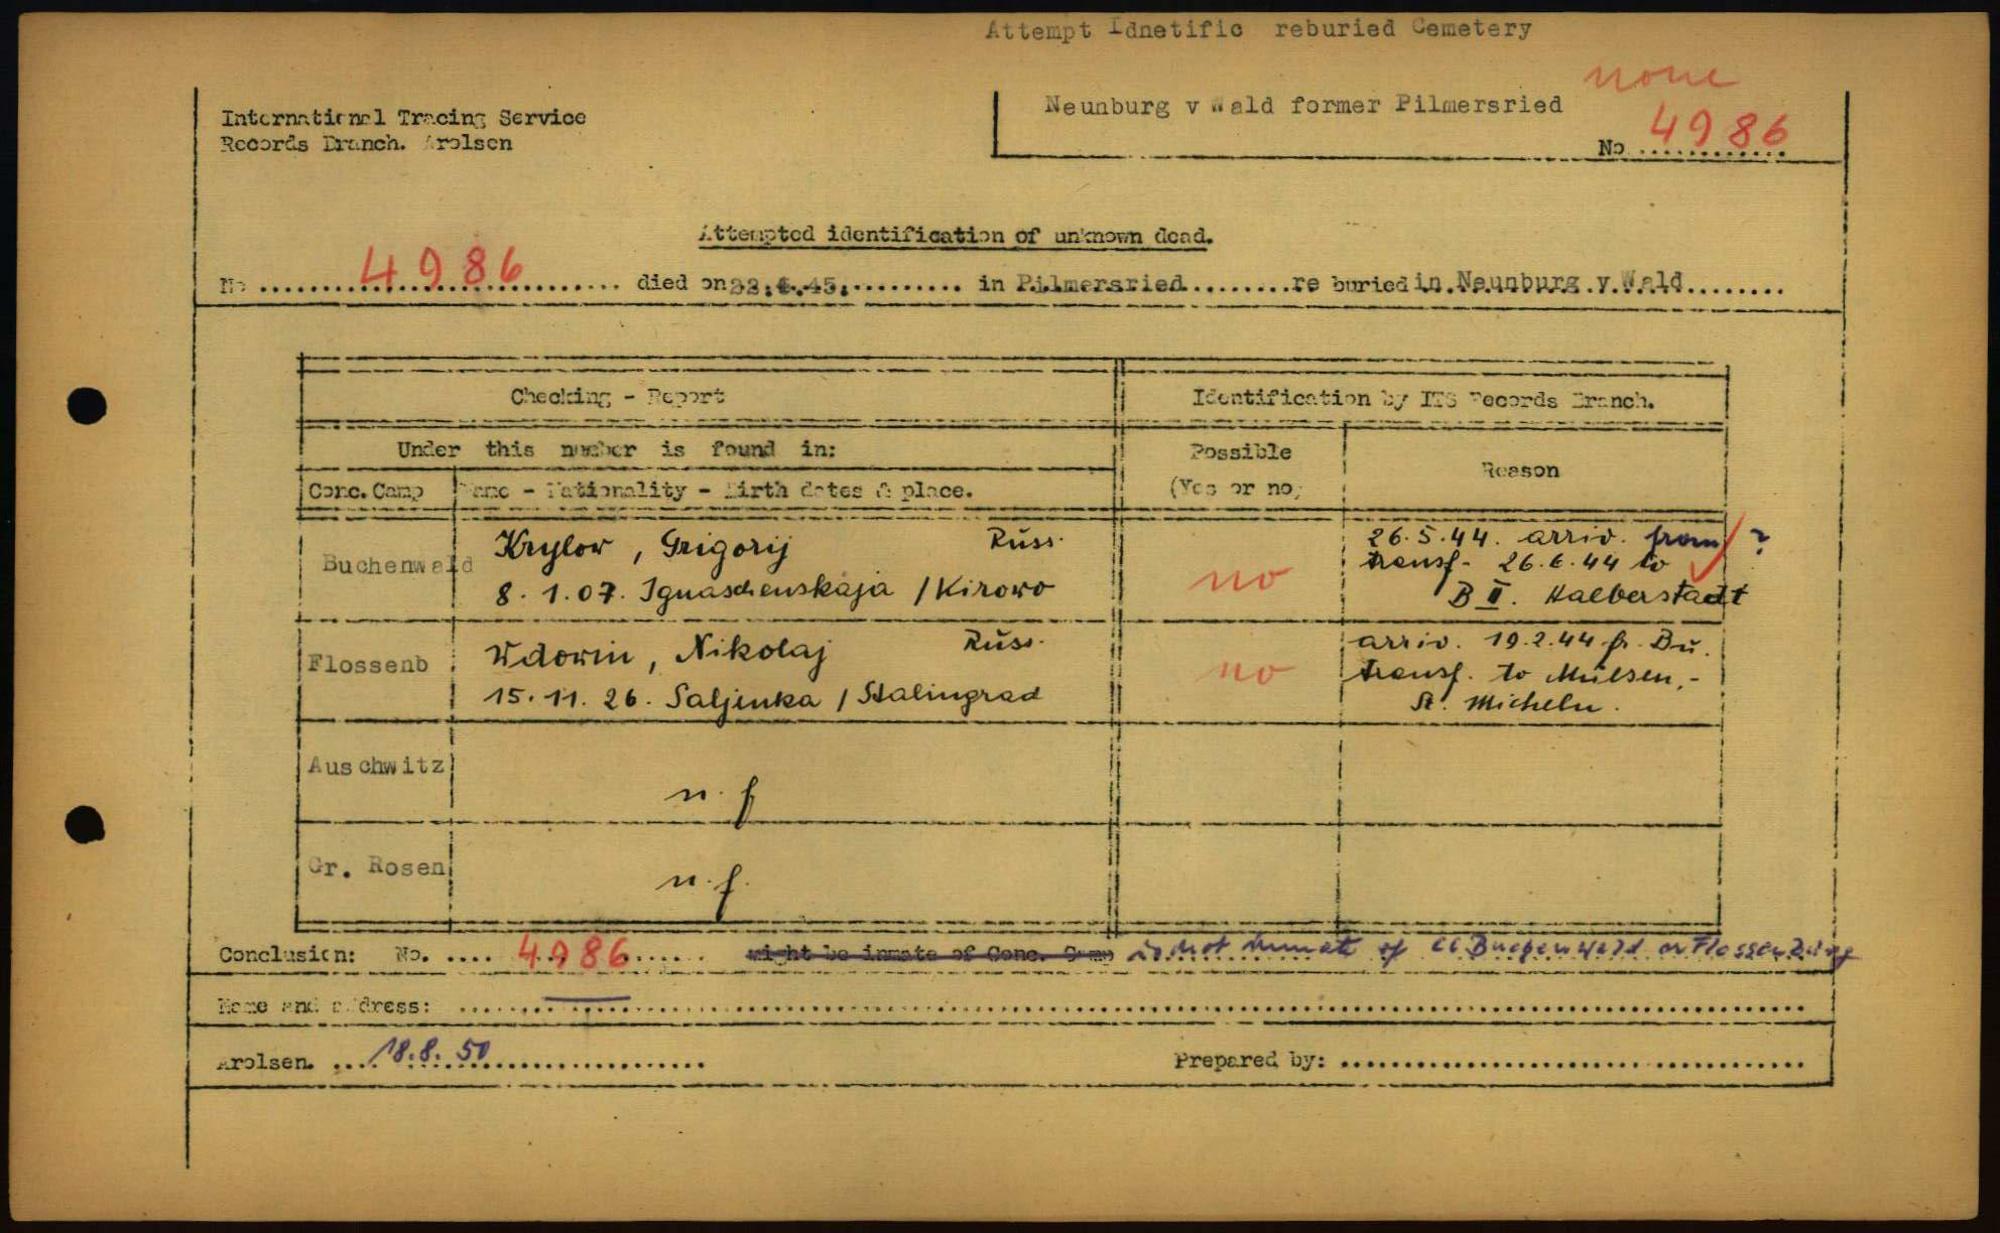 Attempt Idnetific reburied Cemetery
none
Neunburg v Wald former Pilmersried
No ............ 4986
International Tracing Service
Records Branch. Arolsen
Attempted identification of unknown dead.
No .......... 4986 .......... died on 22.4.45. .......... in Pilmersried.........re buried in Neunburg v.Wald........
Checking - Report
Identification by ITS Records Branch.
Under this number is found in:
Possible
(Yes or no)
Reason
Conc. Camp
Name - Nationality - Birth dates & place.
Buchenwald
Krylow, Grigorij Russ.
8.1.07. Ignaschenskaja / Kirowo
no
26.5.44. arriv. from ?
transf. 26.6.44 to
B II. Halberstadt
Flossenb
Wdowin, Nikolaj Russ.
15.11.26. Saljenka / Stalingrad
no
arriv. 19.2.44 fr. Bu.
transf. to Mülsen,-
St. Micheln.
Auschwitz
n.f
Gr. Rosen
n.f.
Conclusion: No. .... 4986 ....... might be inmate of Conc. Camp is not inmate of CC Buchenwald or Flossenbürg
Name and address: ..........
Arolsen. .... 18.8.50 ..........
Prepared by: ..........